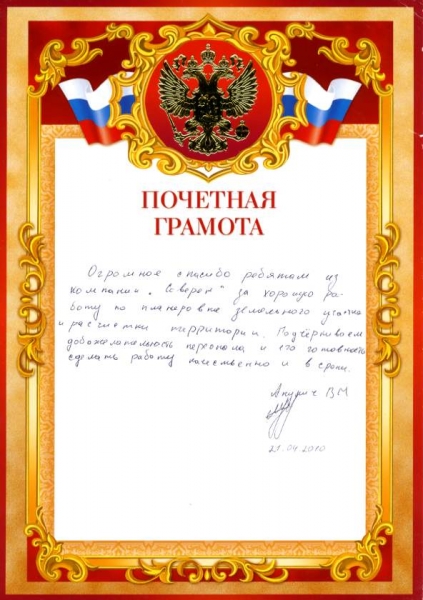 ПОЧЕТНАЯ
ГРАМОТА
Огромное спасибо ребятам из
компании „Северен" за хорошую ра-
боту по планировке земельного участка
и расчистки территории. Подчёркиваем
доброжелательность персонала и его готовность
сделать работу качественно и в сроки.
ВМ
21.04.2010